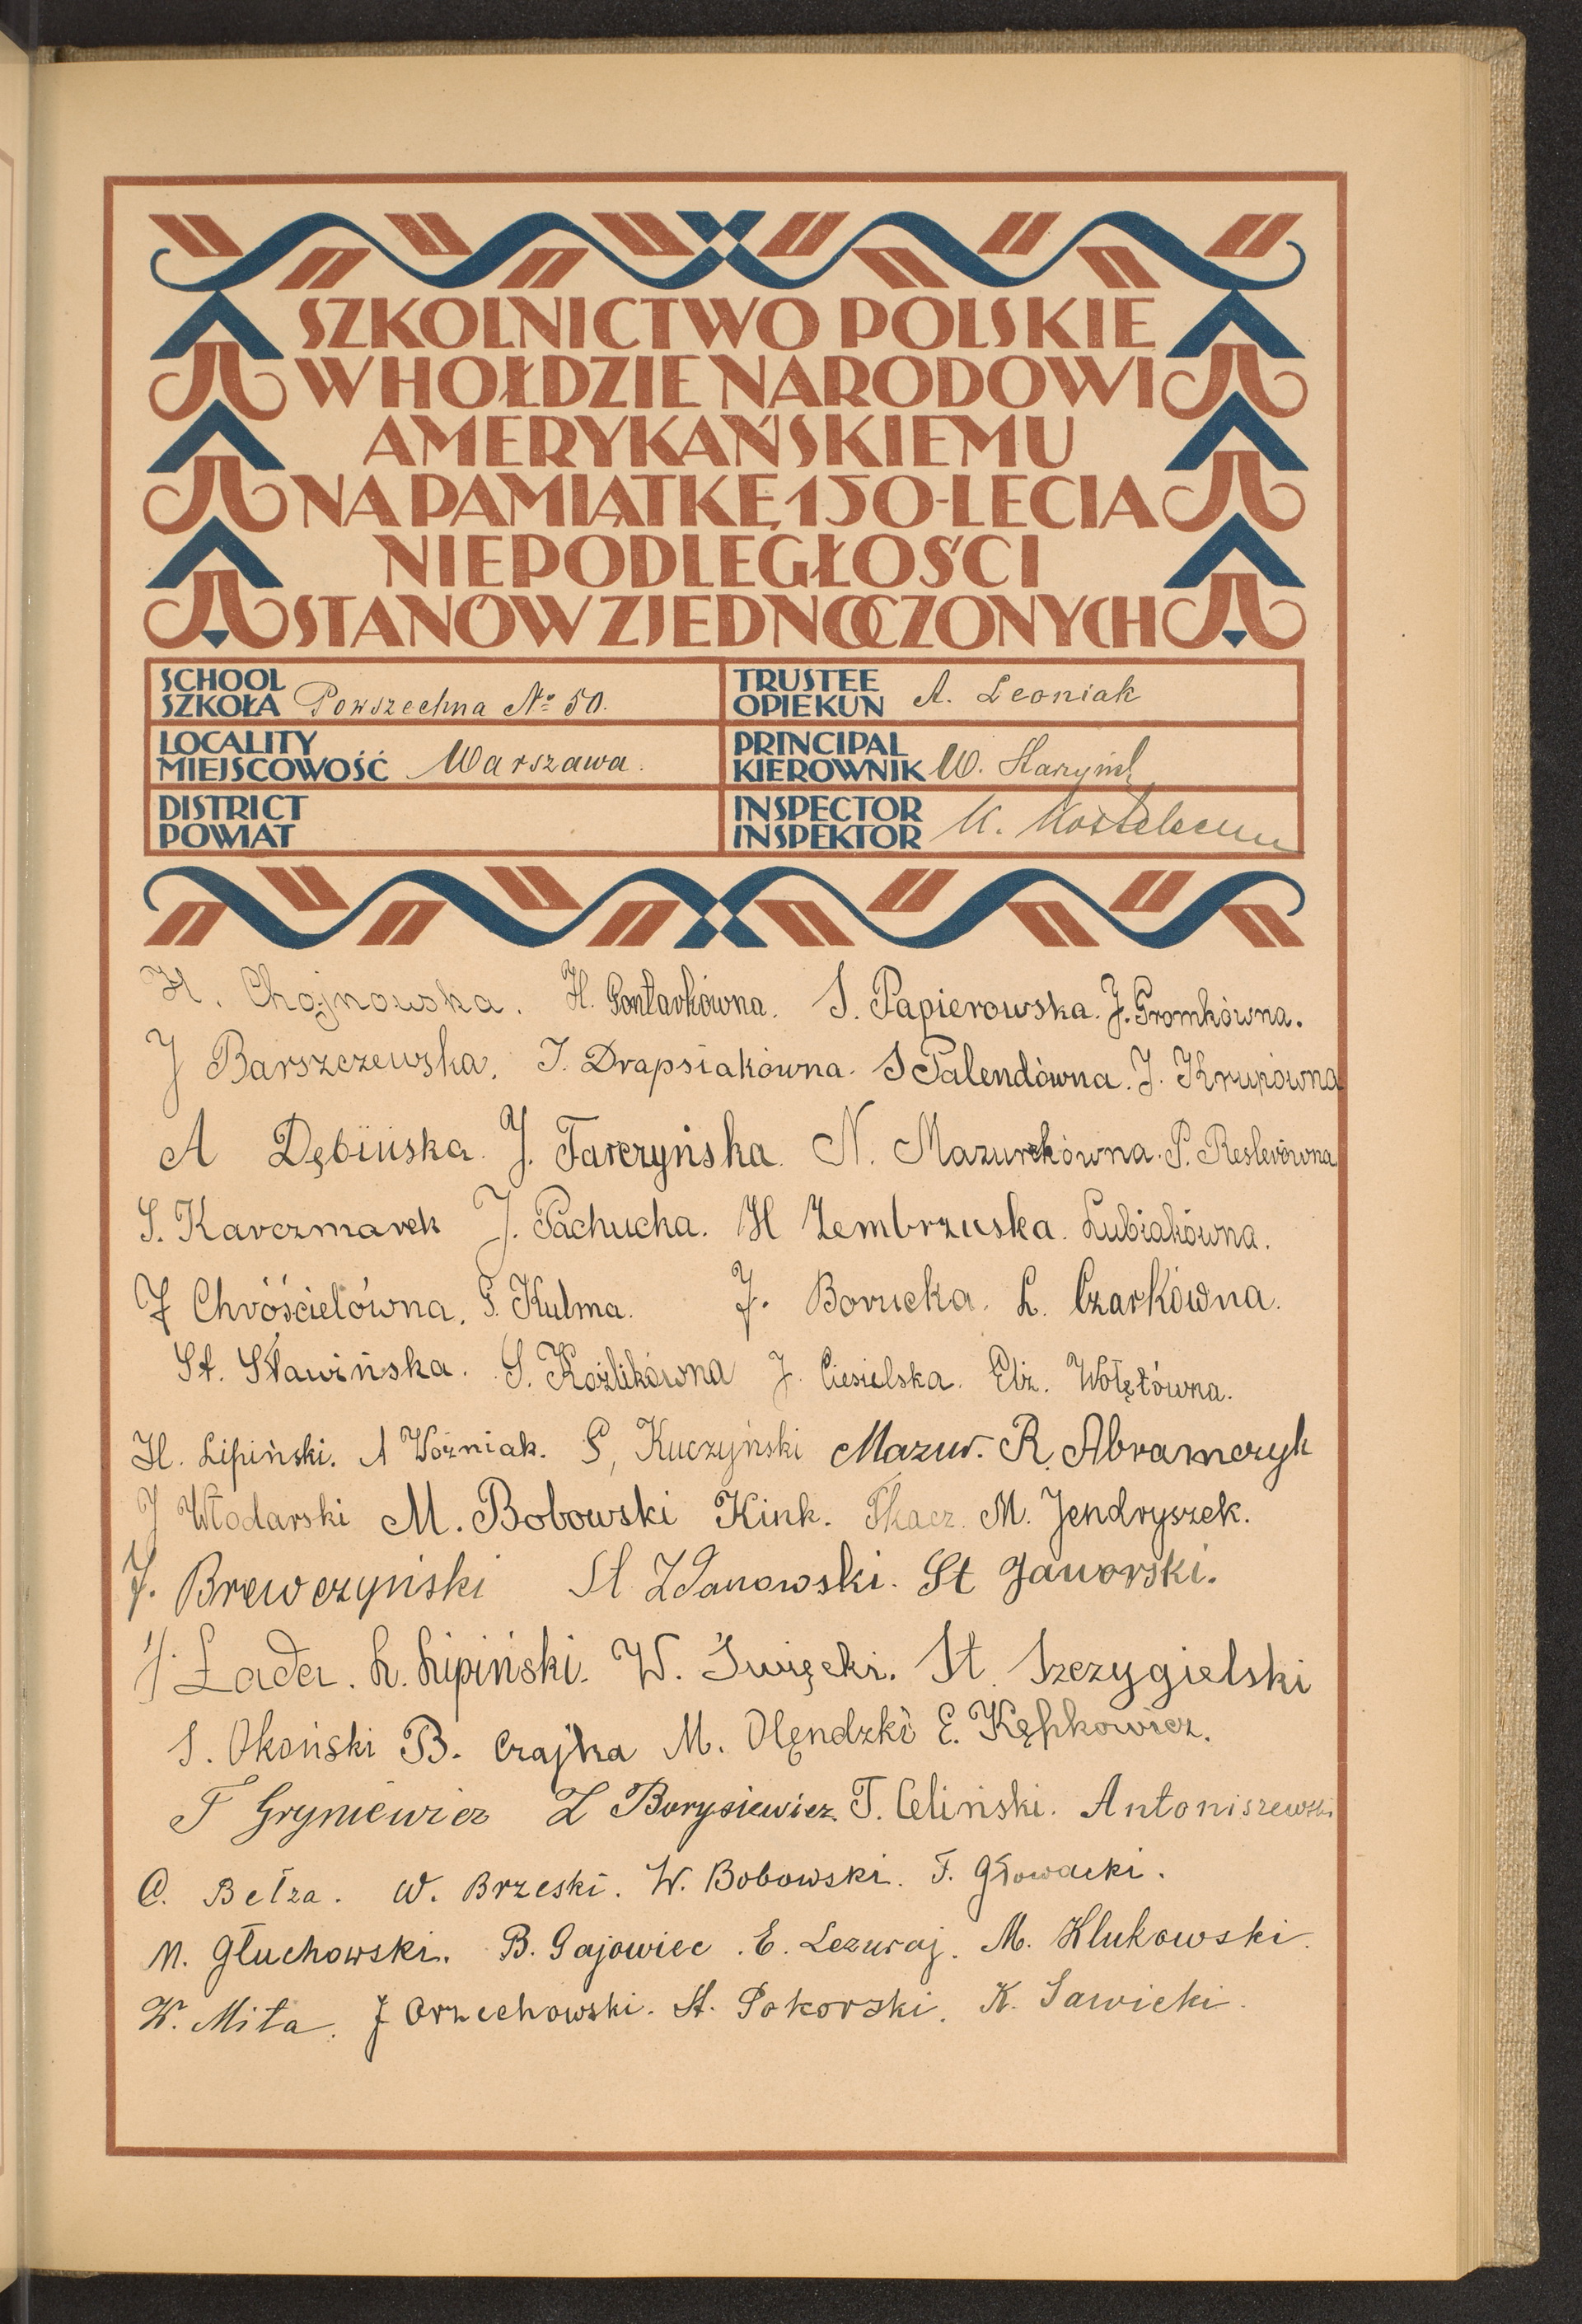 SZKOLNICTWO POLSKIE
W HOŁDZIE NARODOWI
AMERYKAŃSKIEMU
NA PAMIĄTKĘ 150-LECIA
NIEPODLEGŁOŚCI
STANÓW ZJEDNOCZONYCH
SCHOOL
SZKOŁA Powszechna № 50.
TRUSTEE
OPIEKUN A. Leoniak
LOCALITY
MIEJSCOWOŚĆ Warszawa.
PRINCIPAL
KIEROWNIK W.
DISTRICT
POWIAT
INSPECTOR
INSPEKTOR K.
H. Chojnowska. H. Gontarkówna. S. Papierowska. J. Gromkówna.
J Barszczewska. J. Drapsiakówna. S Palendówna. J. Krupówna
A Dębińska. J. Tarczyńska. N. Mazurkówna. P. Reslerówna
S. Karczmarek J. Pachucha. H Zembrzuska. Lubiakówna.
J Chróścielówna. G. Kulma. J. Borucka. L. Czarkówna.
St. Sławińska. S. Koźlikówna J. Ciesielska. Elż. Wołętówna.
H. Lipiński. A Woźniak. S, Kuczyński Mazur. R. Abramczyk
J Włodarski M. Bobowski Kink. Tkacz. M. Jendryszek.
J. Brewczyński St Zdanowski. St Jaworski.
J. Łada. L. Lipiński. W. Święcki. St. Szczygielski
S. Okoński B. Czajka M. Olędzki E. Kępkowicz.
F Gryniewicz Z Borysiewicz. T. Celiński. Antoniszewski
C. Bełza. W. Brzeski. W. Bobowski. F. Głowacki.
M. Głuchowski. B. Gajowiec. E. Lezuraj. M. Klukowski.
W. Miła. J Orzechowski. St. Pokorski. K. Sawicki.